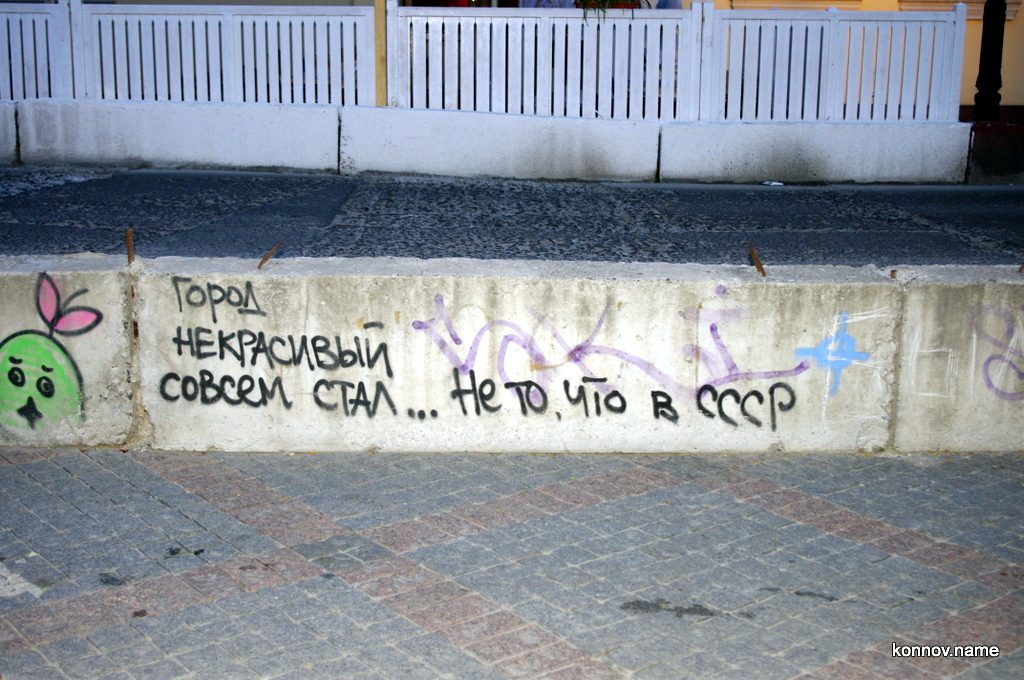 ГОРОД
НЕКРАСИВЫЙ
СОВСЕМ СТАЛ... НЕ ТО, ЧТО В СССР
konnov.name